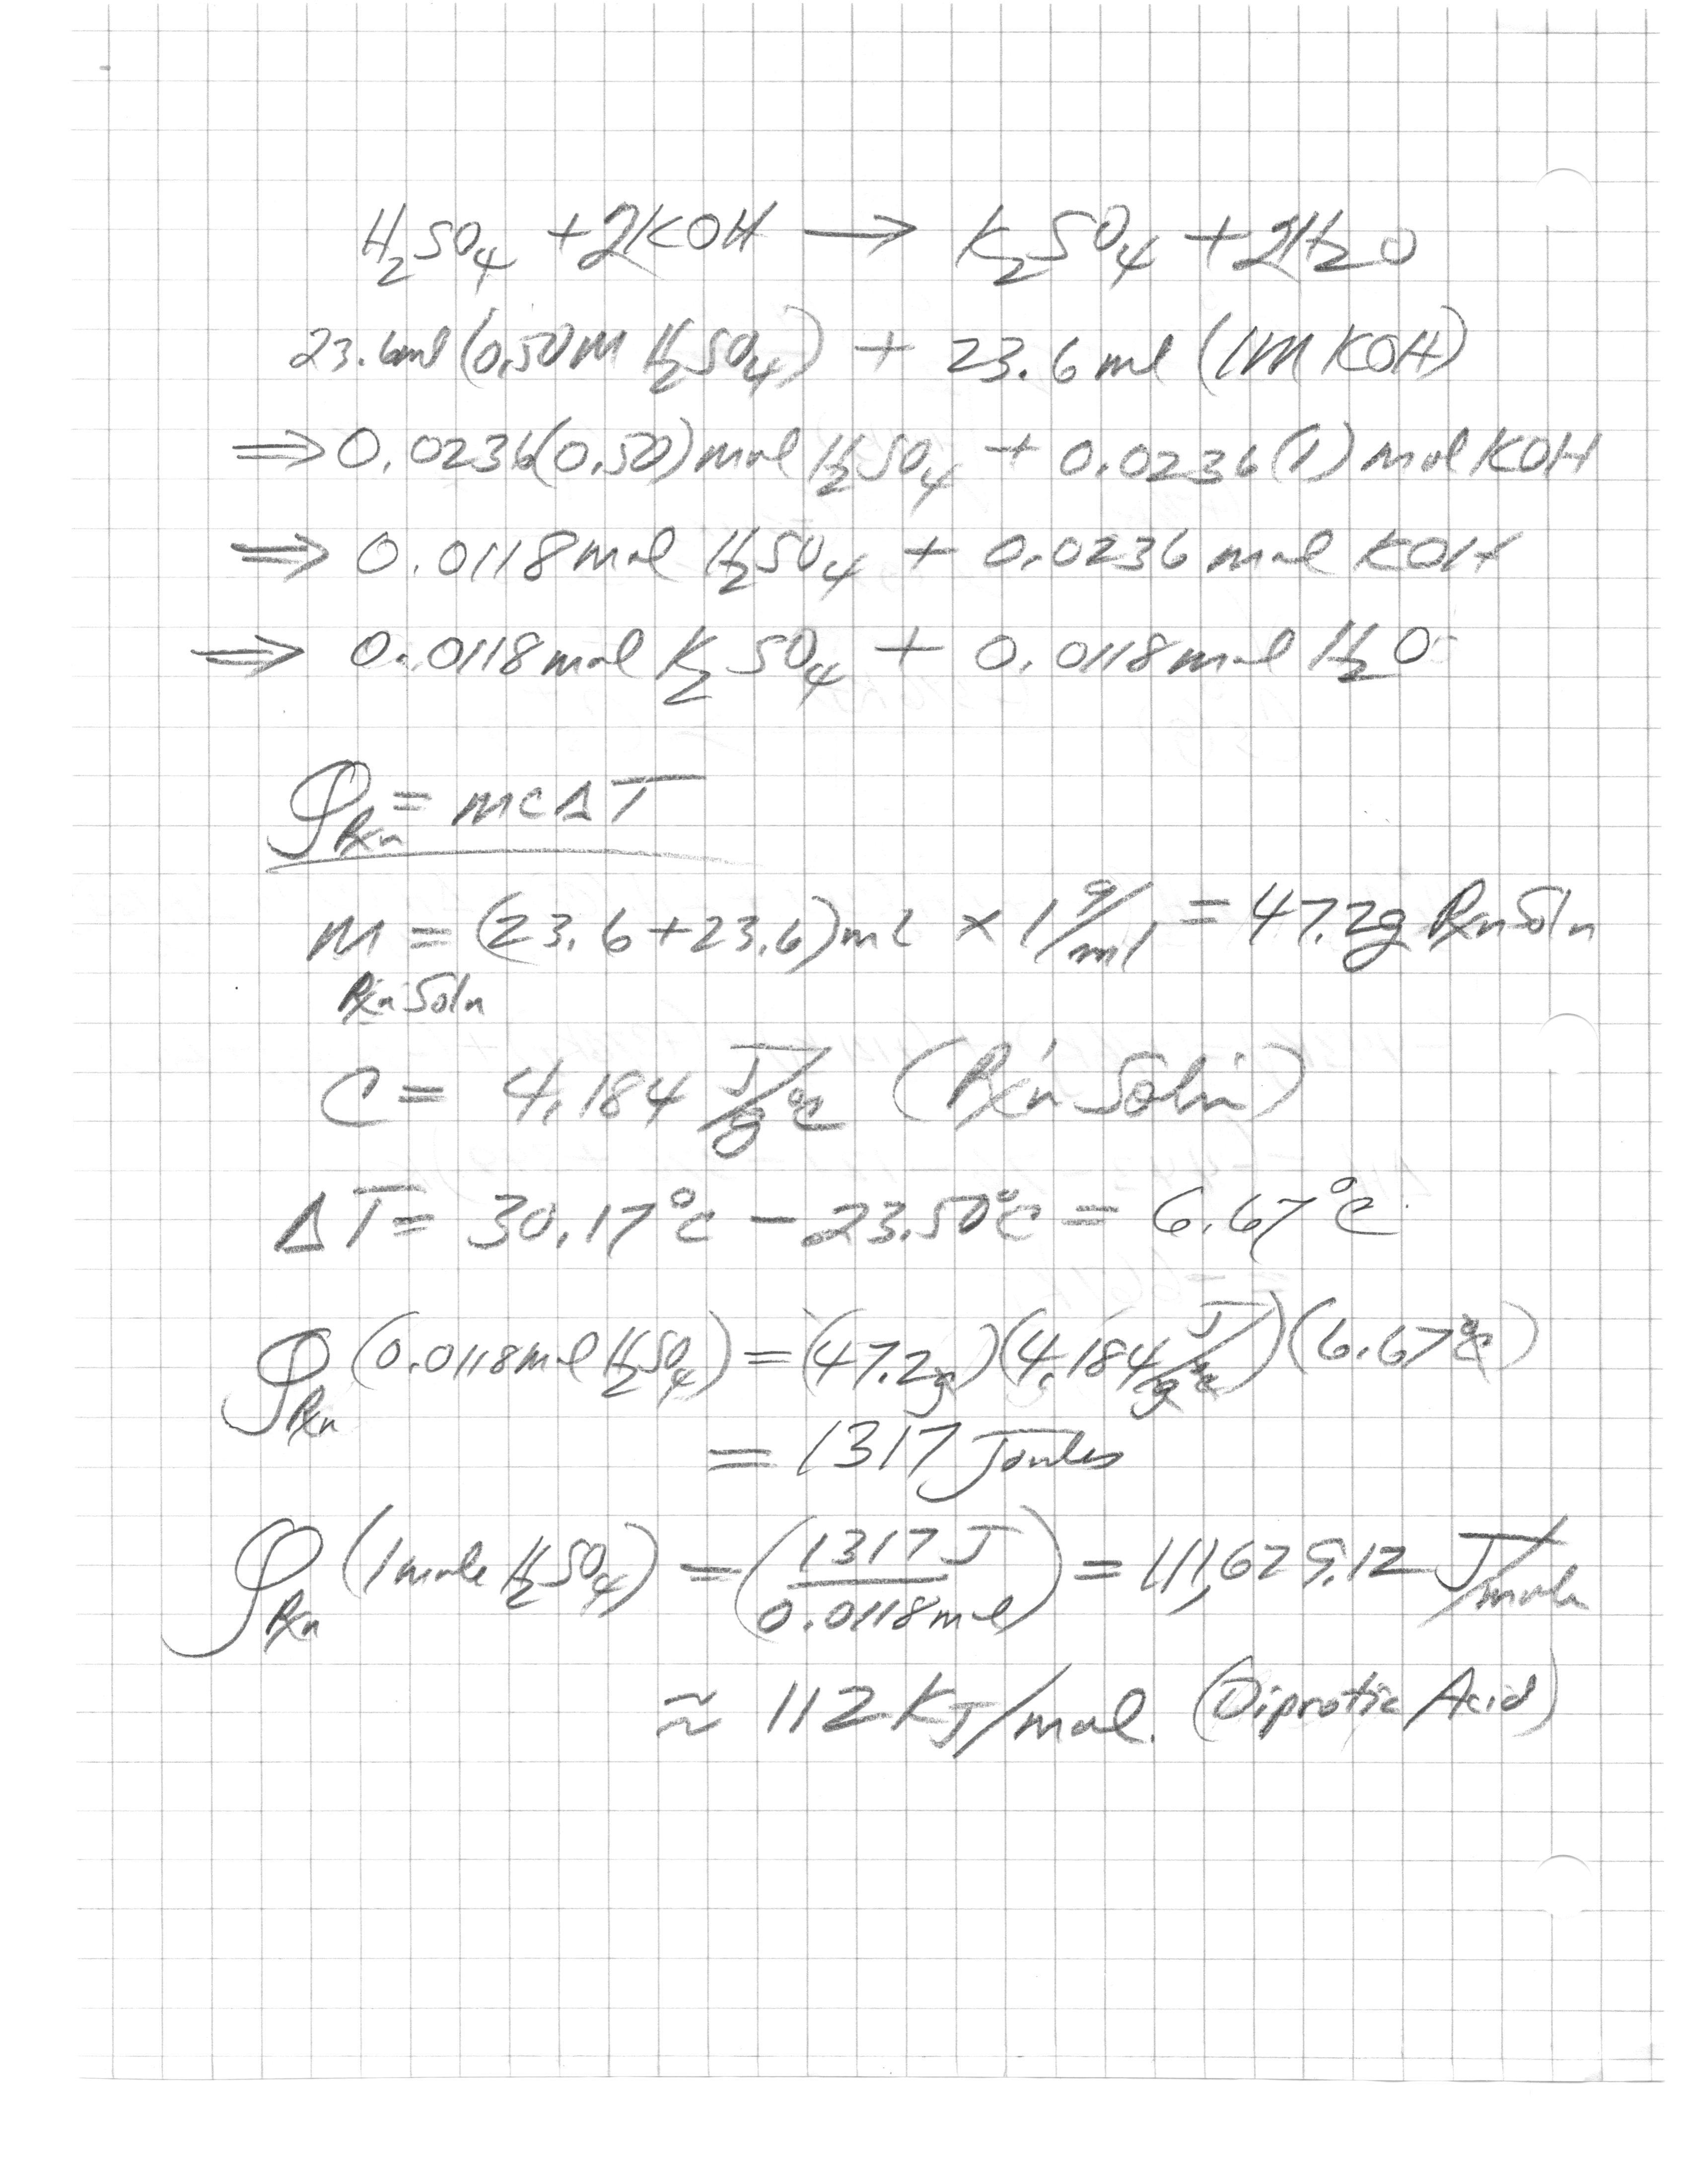 H₂SO₄ + 2KOH ⟶ K₂SO₄ + 2H₂O
23.6ml (0.50M H₂SO₄) + 23.6 ml (1M KOH)
⟹ 0.0236(0.50) mol H₂SO₄ + 0.0236(1) mol KOH
⟹ 0.0118 mol H₂SO₄ + 0.0236 mol KOH
⟹ 0.0118 mol K₂SO₄ + 0.0118 mol H₂O
Q_Rxn = mcΔT
m_Rxn Soln = (23.6 + 23.6)ml × 1 g/ml = 47.2g Rxn Soln
C = 4.184 J/g°C (Rxn Soln)
ΔT = 30.17°C − 23.50°C = 6.67°C
Q_Rxn (0.0118 mol H₂SO₄) = (47.2g)(4.184 J/g°C)(6.67°C)
= 1317 Joules
Q_Rxn (1 mole H₂SO₄) = (1317 J / 0.0118 mol) = 111,625.12 J/mole
≈ 112 KJ/mol. (Diprotic Acid)